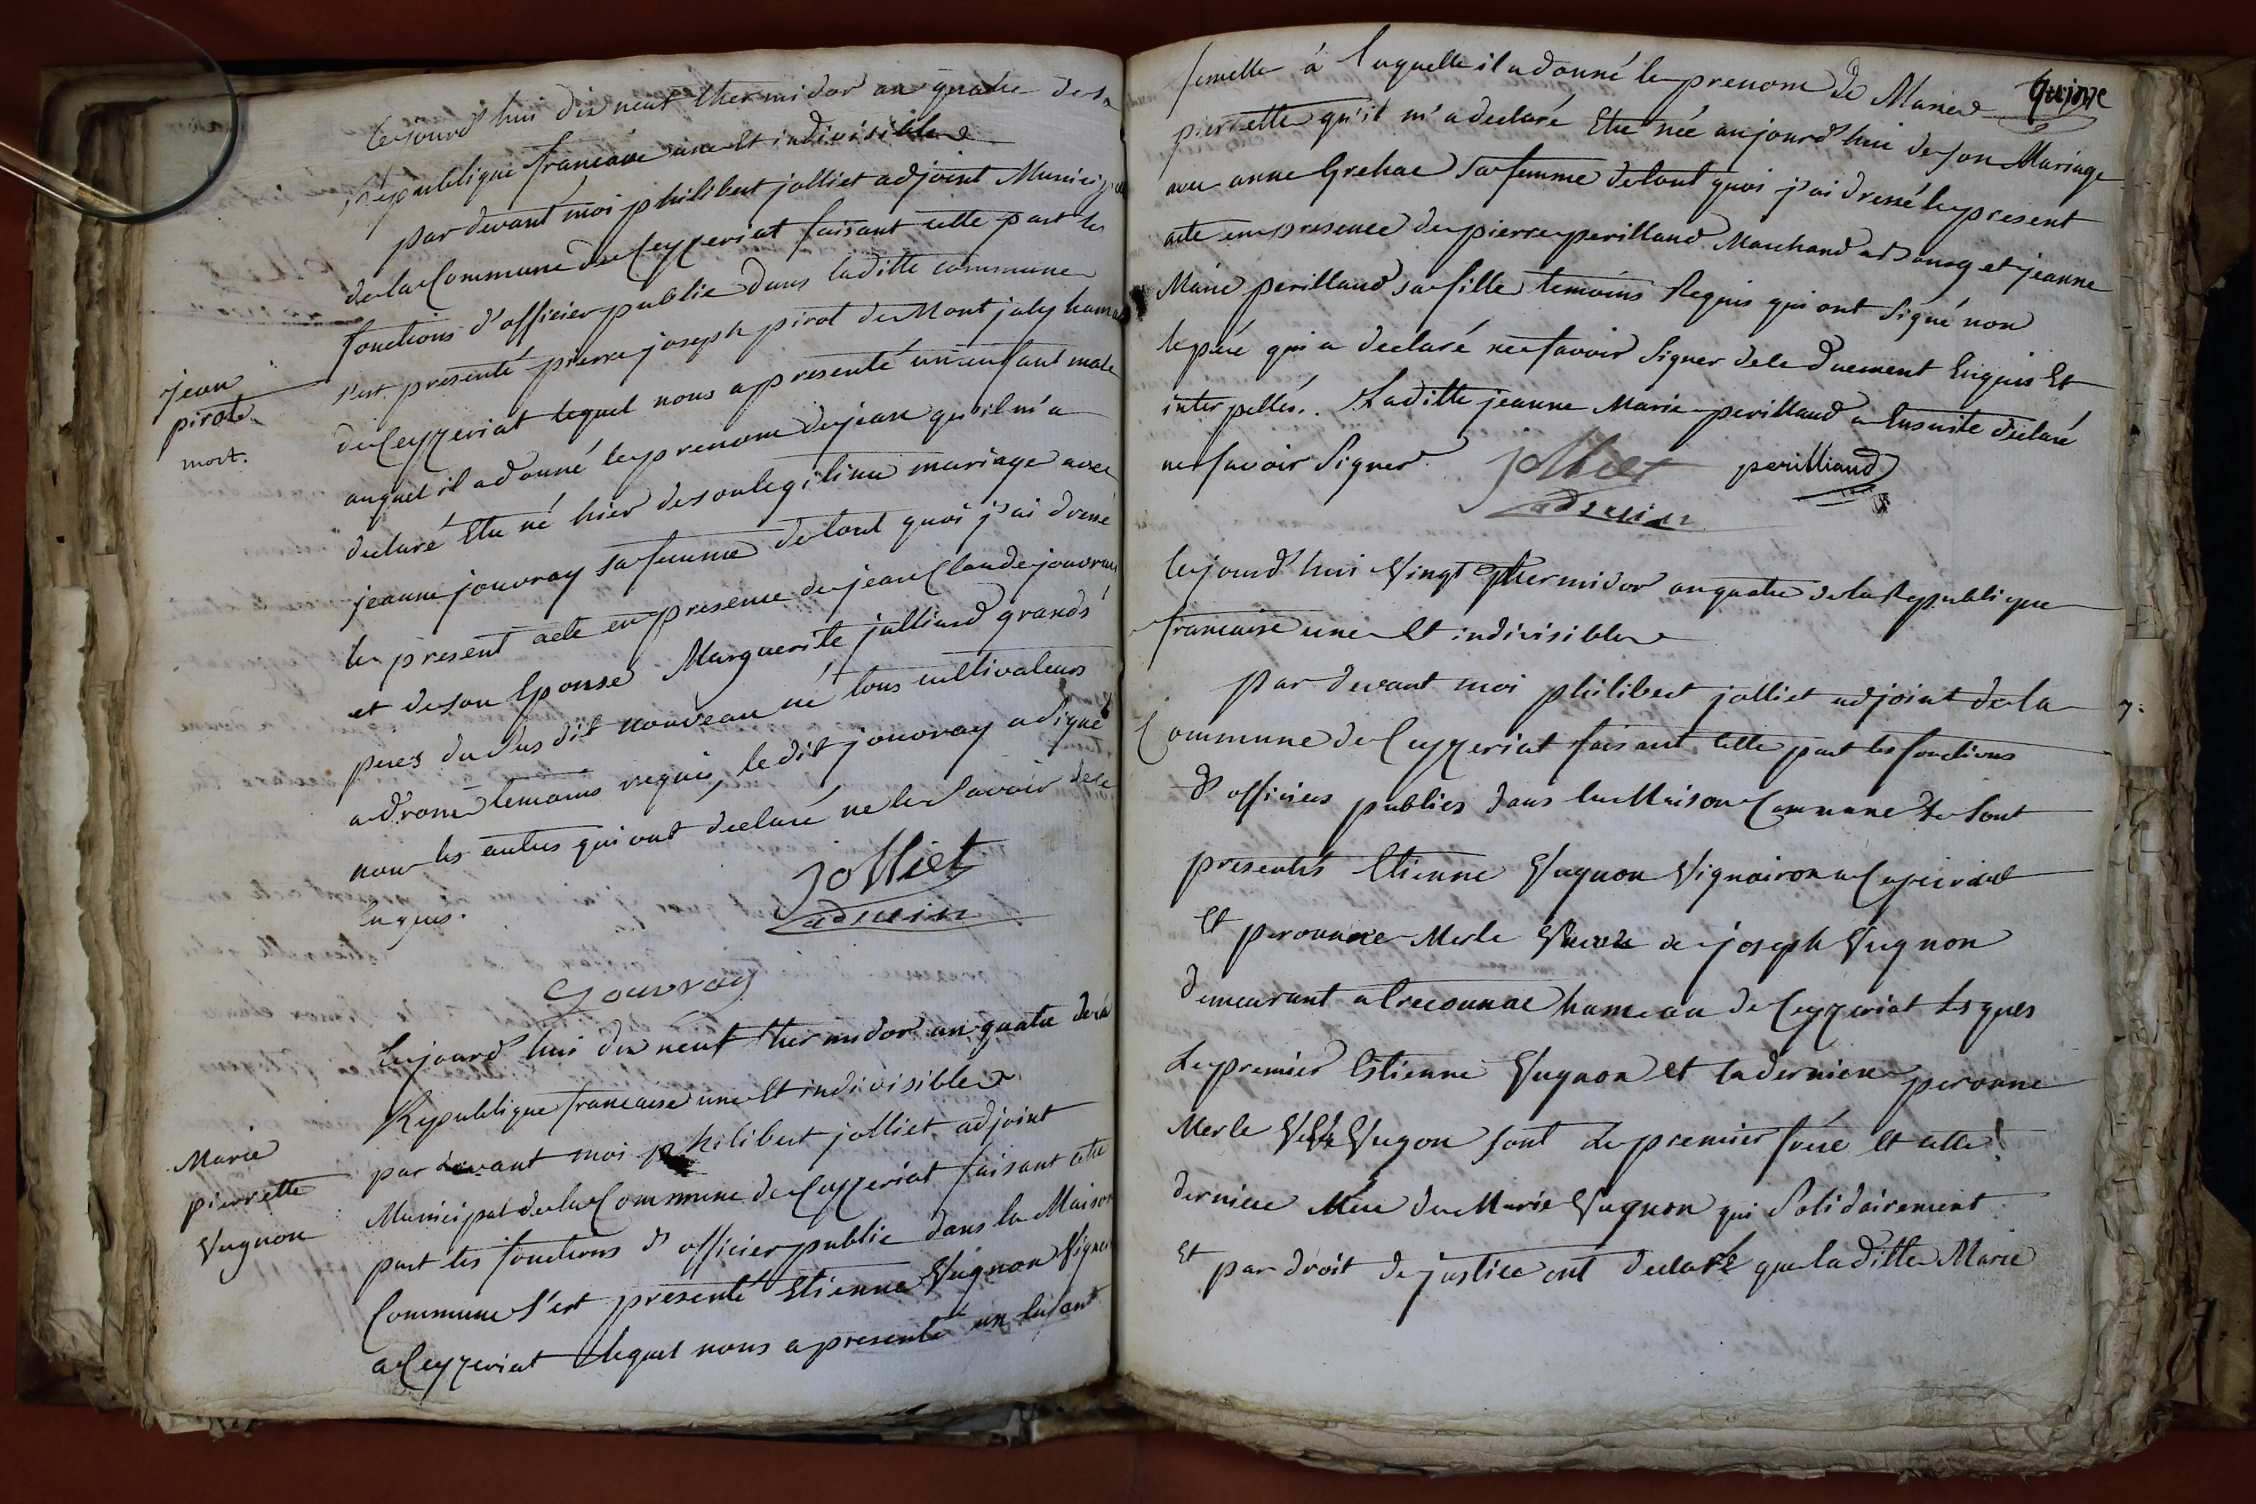 Cejourd'hui dix neut thermidor an quatre de la
République francaise une et indivisible
par devant moi philibert jolliet adjoint Municipal
de la Commune de Ceyzeriat faisant cette part les
fonctions d'officier public dans laditte commune
s'est presenté pierre joseph pirot de Mont july hameau
de Ceyzeriat lequel nous a presenté un enfant male
auquel il a donné le prenom de jean qu'il m'a
declaré Etre né hier de son legitime mariage avec
jeanne jouvray sa femme de tout quoi j'ai dressé
le present acte en presence de jean Claude jouvray
et de son Epouse Marguerite julliard grands
peres du sus dit nouveau né tous cultivateurs
a drom temoins requis, ledit jouvray a signé
non les autres qui ont declaré ne le savoir de ce
Enquis.
jean
pirot
mort.
jolliet
adjoin
Jouvray
Cejourd'hui dix neuf thermidor an quatre de la
République francaise une et indivisible
par devant moi philibert jolliet adjoint
Municipal de la Commune de Ceyzeriat faisant cette
part les fonctions d'officier public dans la Maison
Commune s'est presenté Etienne Vugnon Vigneron
a Ceyzeriat lequel nous a presenté un Enfant
Marie
pierrette
Vugnon
Quinze
femelle à laquelle il a donné le prenom de Marie
pierrette qu'il m'a declaré Etre née aujourd'hui de son Mariage
avec anne Grehac sa femme de tout quoi j'ai dressé le present
acte en presence de pierre perilland Marchand a Bourg et jeanne
Marie perilland sa fille temoins Requis qui ont signé non
le péré qui a declaré ne savoir signer de ce Duement Enquis Et
interpellés. Laditte jeanne Marie perilland a Ensuite declaré
ne savoir Signer
jolliet
adjoin
perilliand
Cejourd'hui Vingt thermidor an quatre de la Republique
francaise une et indivisible
par devant moi philibert jolliet adjoint de la
Commune de Ceyzeriat faisant cette part les fonctions
d'officiers publics dans la Maison Commune se sont
presentés Etienne Vugnon Vignairon a Ceyzeriat
Et peronne Merle Veuve de joseph Vugnon
demeurant a treconnac hameau de Ceyzeriat lesques
Le premier Estienne Vugnon et la derniere peronne
Merle Vugon sont le premier frere et cette
derniere Mere de Marie Vugnon qui Solidairement
Et par droit de justice ont declaré que laditte Marie